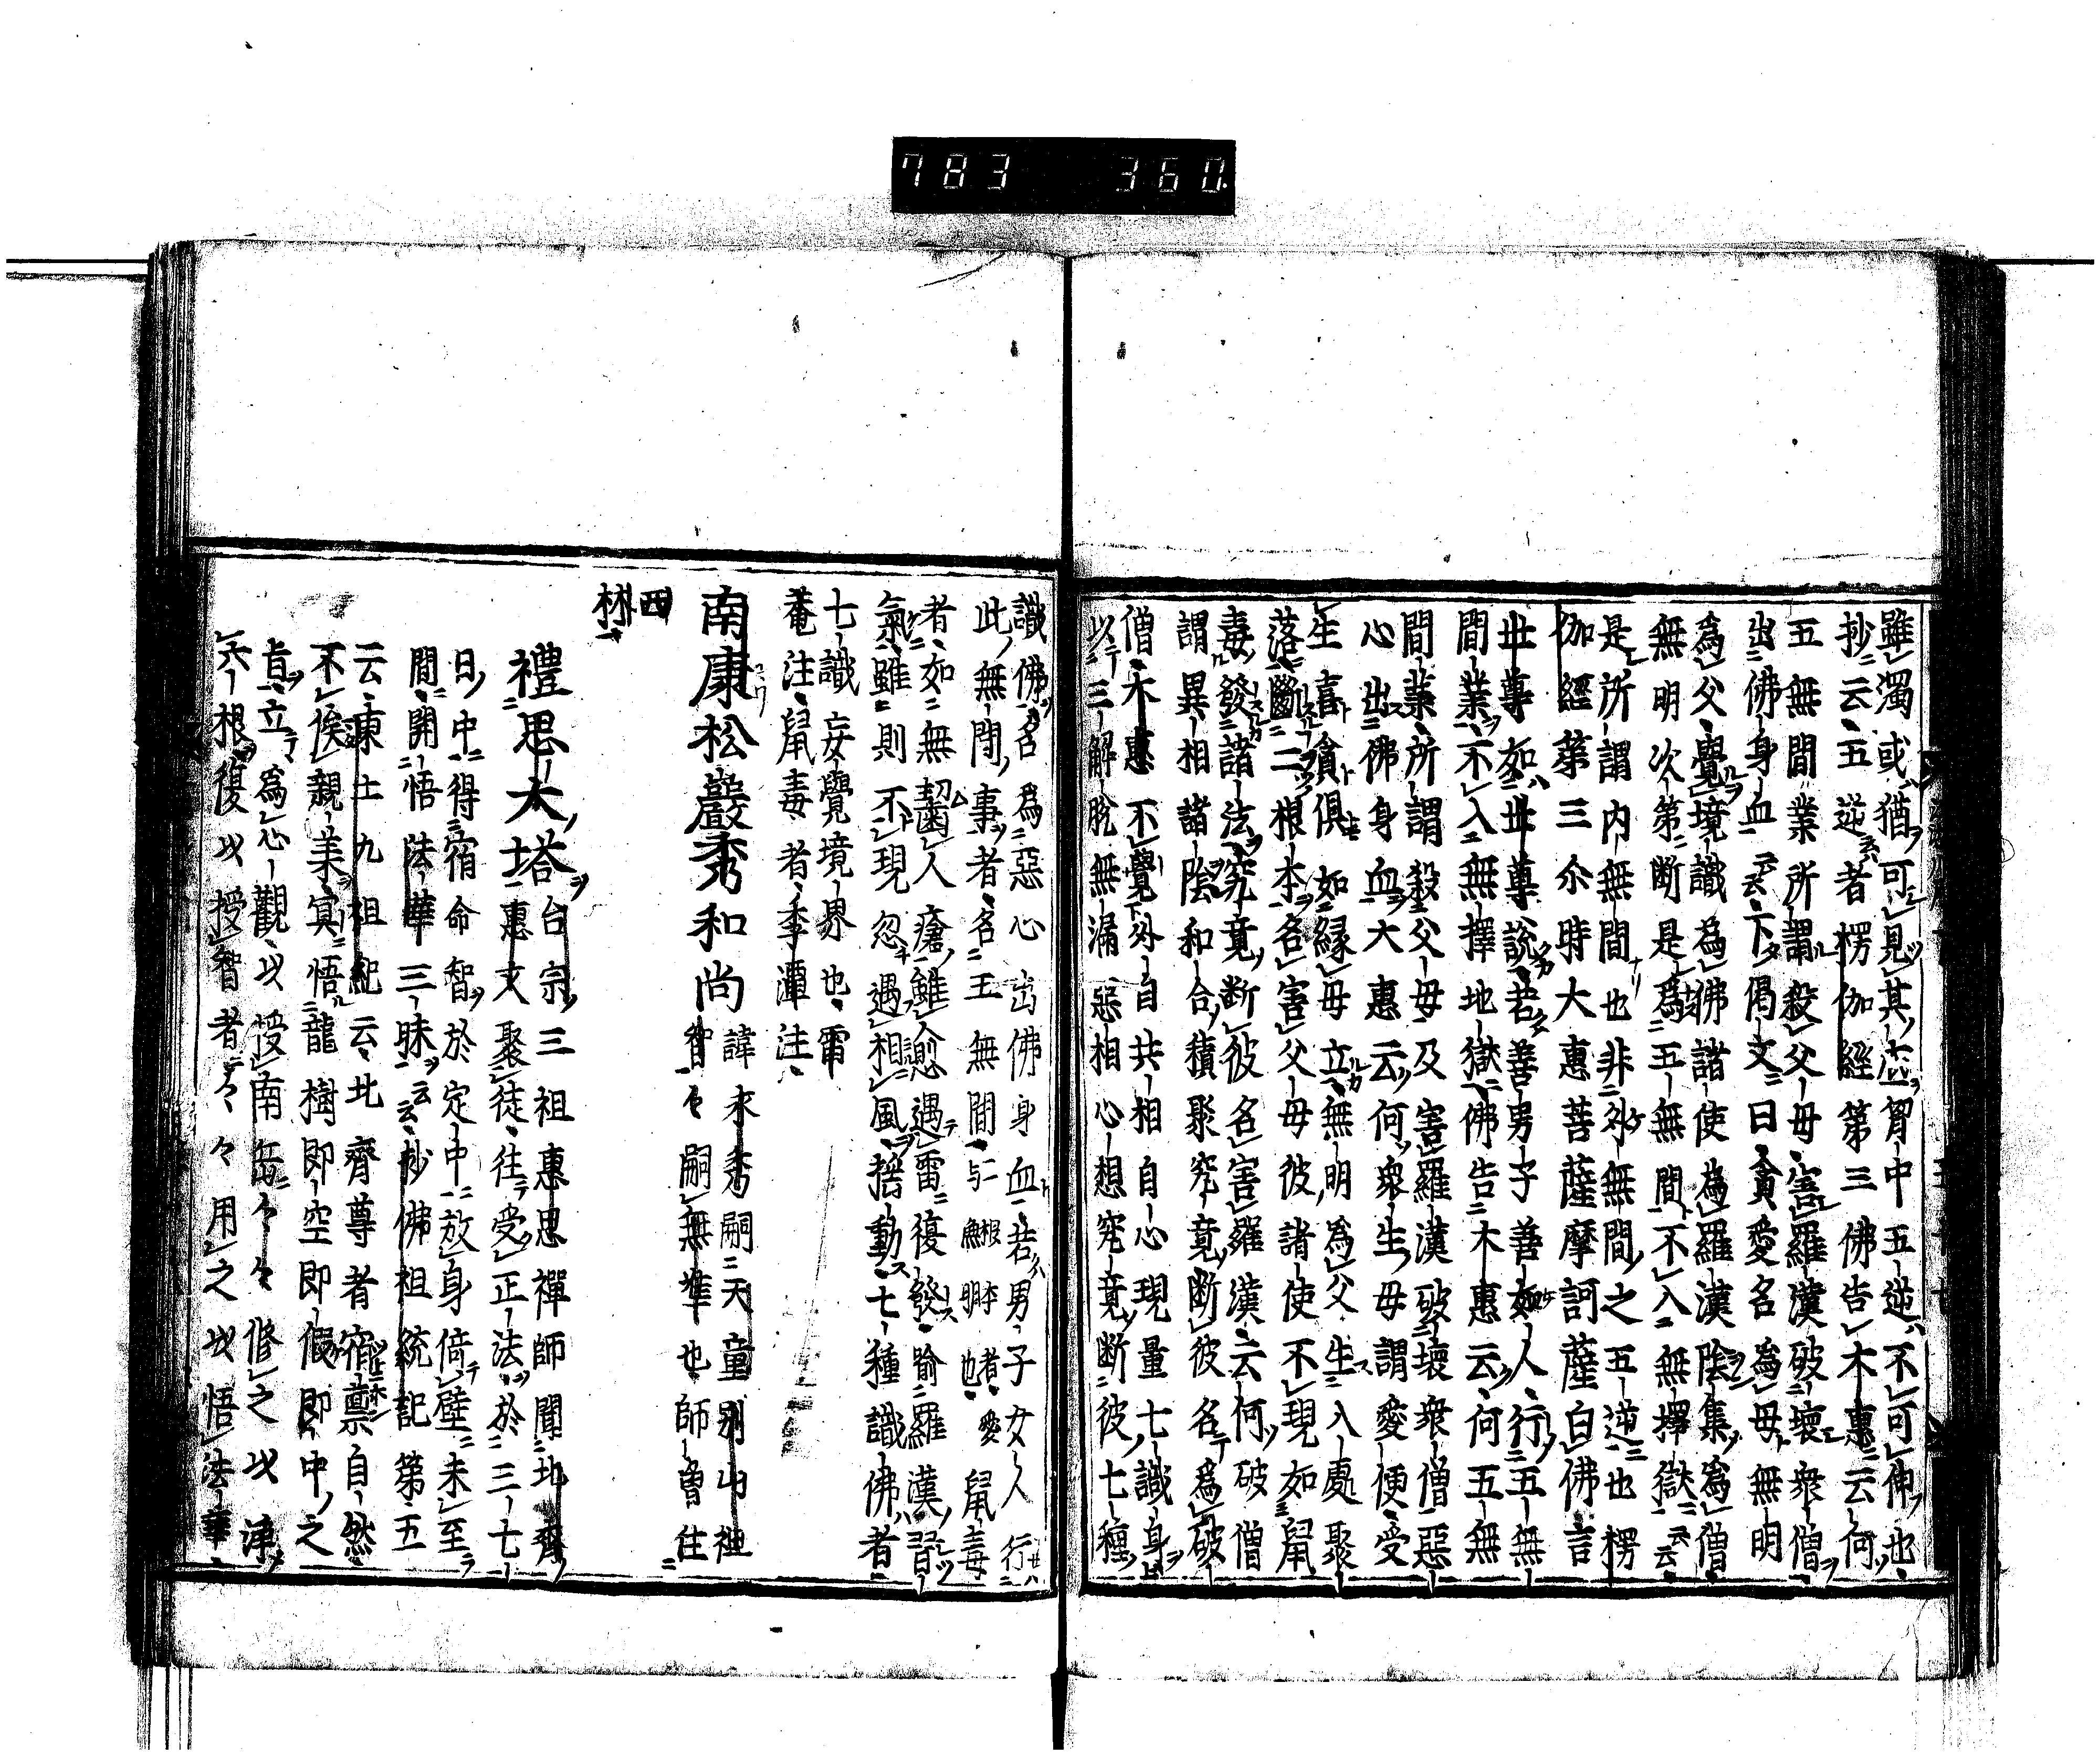 783 360
雖濁或猶可見其
胷中五逆不可伸也
抄云五逆者楞伽經第三佛告大惠云何
五無間業所謂殺父母害羅漢破壞衆僧
出佛身血云云下偈文曰貪愛名為母無明
為父覺境識為佛諸使為羅漢陰集為僧
無明次第断是為五無間不入無擇獄云云
是所謂内無間也非外無間之五逆也楞
伽經第三尒時大惠菩薩摩訶薩白佛言
世尊如世尊說若善男子善女人行五無
間業不入無擇地獄佛告大惠云何五無
間業所謂殺父母及害羅漢破壞衆僧惡
心出佛身血大惠云何衆生母謂愛便受
生喜貪俱如縁母立無明為父生入處聚
落斷二根本名害父母彼諸使不現如鼠
毒發諸法究竟断彼名害羅漢云何破僧
謂異相諸陰和合積聚究竟断彼名為破
僧大惠不覺外自共相自心現量七識身
以三解脫無漏惡相心想究竟断彼七種
識佛名為惡心出佛身血若男子女人行
此無間事者名五無間与二根本無明者愛也鼠毒
者如無齧人瘡雖愈遇雷復發喻羅漢習
氣雖則不現忽遇相風揺動七種識佛者
七識妄覺境界也雷
菴注鼠毒者季潭注
南康松巖秀和尚諱永秀嗣天童別山祖
智智嗣無準也師曽住
西
林
禮思大塔台宗三祖惠思禪師聞北齊
惠文聚徒往受正法於三七
日中得宿命智於定中放身倚壁未至
間開悟法華三昧云云抄佛祖統記第五
云東土九祖紀云北齊尊者宿禀自然
不俟親美冥悟龍樹即空即假即中之
㫖立為心觀以授南岳々々々修之以浄
六根復以授智者々々々用之以悟法華